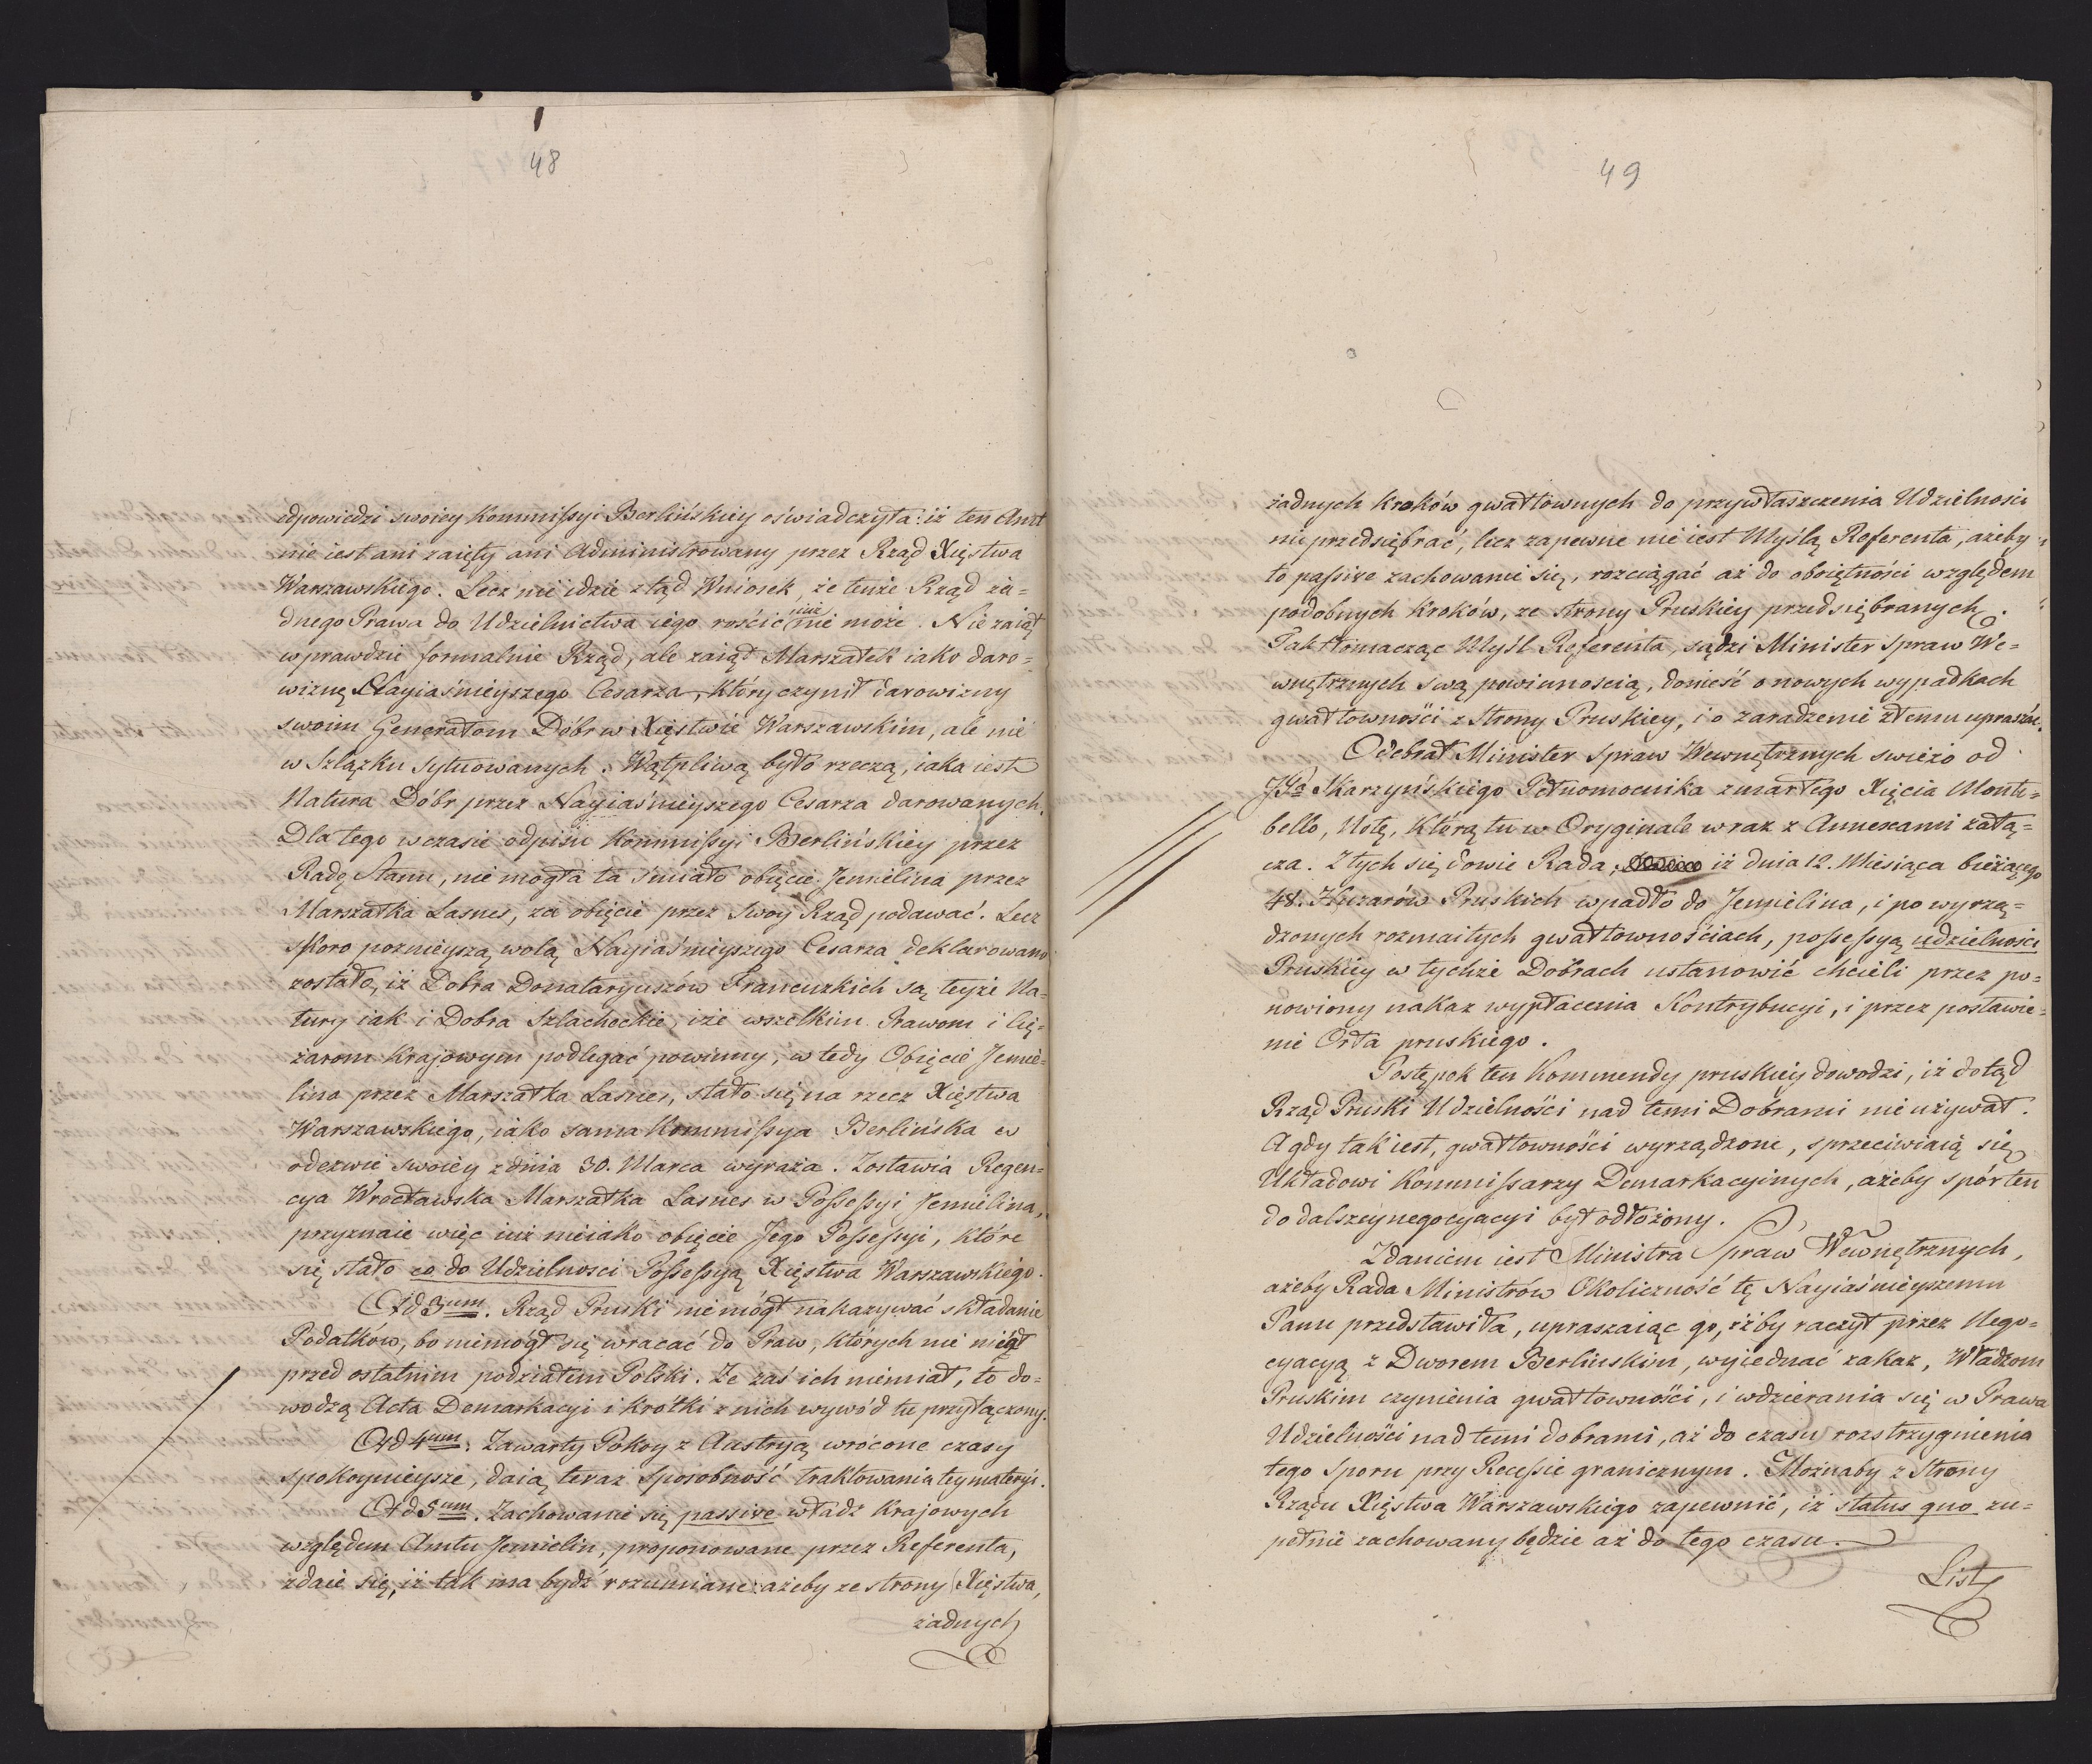 48
odpowiedzi swoiey Kommissyi Berlińskiey oświadczyła: iż ten Amt
nie iest ani zaięty ani Administrowany przez Rząd Xięstwa
Warszawskiego. Lecz nie idzie ztąd Wniosek, że tenże Rząd ża=
dnego Prawa do Udzielnictwa iego rościć nie może. Nie zaiął
wprawdzie formalnie Rząd, ale zaiął Marszałek iako daro=
wiznę Nayiaśnieyszego Cesarza, który czynił darowizny
swoim Generałom Dóbr w Xięstwie Warszawskim, ale nie
w Szląsku sytuowanych. Wątpliwą było rzeczą, iaka iest
Natura Dóbr przez Nayiaśnieyszego Cesarza darowanych.
Dla tego w czasie odpisu Kommissyi Berlińskiey przez
Radę Stanu, nie mogła ta śmiało obięcie Jemielina przez
Marszałka Lasnes, za obięcie przez swoy Rząd podawać. Lecz
skoro poznieyszą wolą Nayiaśnieyszego Cesarza deklarowano
zostało, iż Dobra Donataryuszów Francuzkich są teyże Na=
tury iak i Dobra Szlacheckie, iże wszelkim Prawom i Cię=
żarom Krajowym podlegać powinny, w tedy Obięcie Jemie=
lina przez Marszałka Lasnes, stało się na rzecz Xięstwa
Warszawskiego, iako sama Kommissya Berlińska w
odezwie swoiey z dnia 30. Marca wyraża. Zostawia Regen=
cya Wrocławska Marszałka Lasnes w Possessyi Jemielina,
przyznaie więc iuż nieiako obięcie Jego Possessyi, które
się stało co do Udzielnosci Possessyą Xięstwa Warszawskiego.
Ad 3um. Rząd Pruski nie mógł nakazywać składanie
Podatków, bo niemógł się wracać do Praw, których nie miał
przed ostatnim podziałem Polski. Że zaś ich niemiał, to do=
wodzą Acta Demarkacyi i krótki z nich wywód tu przyłączony.
Ad 4um. Zawarty Pokoy z Austryą wrócone czasy
spokoynieysze, daią teraz sposobność traktowania tey materyi.
Ad 5um. Zachowanie się passive władz Krajowych
względem Amtu Jemielin, proponowane przez Referenta,
zdaie się, iż tak ma bydź rozumiane: ażeby ze strony Xięstwa,
żadnych
49
żadnych kroków gwałtownych do przywłaszczenia Udzielnosci
nieprzedsiębrać, lecz zapewne nie iest Myślą Referenta, ażeby
to passive zachowanie się, rozciągać aż do oboiętności względem
podobnych kroków, ze strony Pruskiey przedsiębranych.
Tak tłomacząc Myśl Referenta, sądzi Minister Spraw We=
wnętrznych swą powinnoscią, donieść o nowych wypadkach
gwałtowności z Strony Pruskiey, i o zaradzenie złemu uprasza.
Odebrał Minister Spraw Wewnętrznych swieżo od
Skarzyńskiego Pełnomocnika zmarłego Xięcia Monte=
bello, Notę, którą tu w Oryginale wraz z Annexami załą=
cza. Z tych się dowie Rada, iż dnia 12. Miesiąca bieżącego
48. Huzarów Pruskich wpadło do Jemielina, i po wyrzą=
dzonych rozmaitych gwałtownościach, possessyą udzielności
Pruskiey w tychże Dobrach ustanowić chcieli przez po=
nowiony nakaz wypłacenia Kontrybucyi, i przez postawie=
nie Orła pruskiego.
Postępek ten Kommendy pruskiey dowodzi, iż dotąd
Rząd Pruski Udzielności nad temi Dobrami nie używał.
A gdy tak iest, gwałtowności wyrządzone, sprzeciwiaią się
Układowi Kommissarzy Demarkacyinych, ażeby spór ten
do dalszey negocyacyi był odłożony.
Zdaniem iest Ministra Spraw Wewnętrznych,
ażeby Rada Ministrów Okoliczność tę Nayiaśnieyszemu
Panu przedstawiła, upraszaiąc go, iżby raczył przez Nego=
cyacyą z Dworem Berlinskim, wyiednać zakaz, Władzom
Pruskim czynienia gwałtowności, i wdzierania się w Prawa
Udzielności nad temi dobrami, aż do czasu rozstrzygnienia
tego Sporu przy Recessie granicznym. Możnaby z Strony
Rządu Xięstwa Warszawskiego zapewnić, iż status quo zu=
pełnie zachowany będzie aż do tego czasu.
List